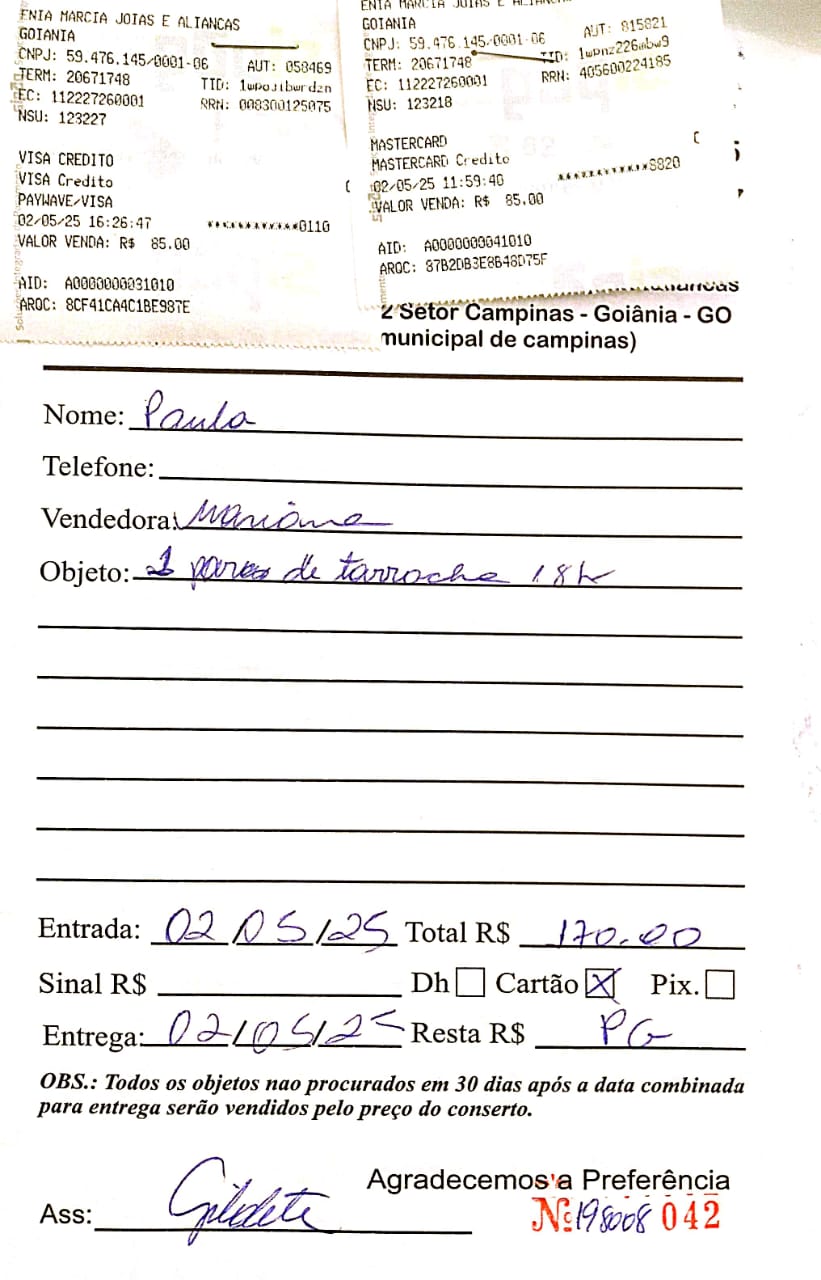 ENIA MARCIA JOIAS E ALIANCAS
GOIANIA
CNPJ: 59.476.145/0001-06 AUT: 058469
TERM: 20671748 TID: 1wpoj1bwrdzn
EC: 112227260001 RRN: 008300125075
NSU: 123227
VISA CREDITO
VISA Credito
PAYWAVE/VISA
02/05/25 16:26:47 ************0110
VALOR VENDA: R$ 85.00
AID: A0000000031010
ARQC: 8CF41CA4C1BE987E
ENIA MARCIA JOIAS E
GOIANIA
CNPJ: 59.476.145/0001-06 AUT: 815821
TERM: 20671748 TID: 1wpnz226mbw9
EC: 112227260001 RRN: 405600224185
NSU: 123218
MASTERCARD
MASTERCARD Credito
02/05/25 11:59:40 ************5820
VALOR VENDA: R$ 85.00
AID: A0000000041010
ARQC: 87B2DB3E8B48D75F
2 Setor Campinas - Goiânia - GO
municipal de campinas)
Nome: Paula
Telefone:
Vendedora: Mariana
Objeto: 1 pares de tarracha 18k
Entrada: 02/05/25 Total R$ 170.00
Sinal R$ Dh Cartão X Pix.
Entrega: 02/05/25 Resta R$ PG
OBS.: Todos os objetos nao procurados em 30 dias após a data combinada
para entrega serão vendidos pelo preço do conserto.
Agradecemos a Preferência
Ass: Gildete Nº 198008 042